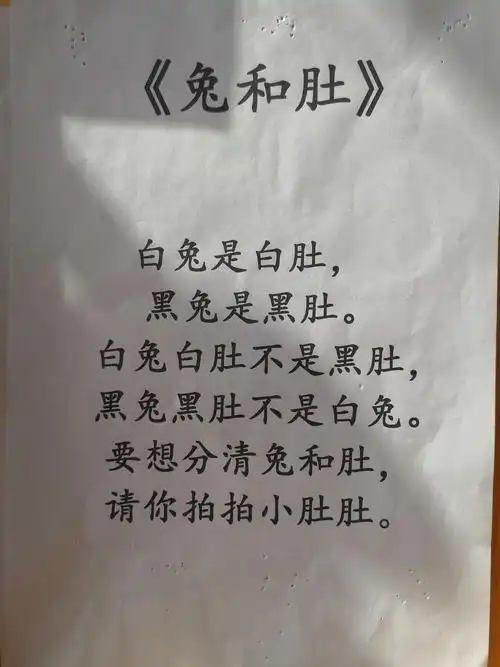 《兔和肚》
白兔是白肚，
黑兔是黑肚。
白兔白肚不是黑肚，
黑兔黑肚不是白兔。
要想分清兔和肚，
请你拍拍小肚肚。